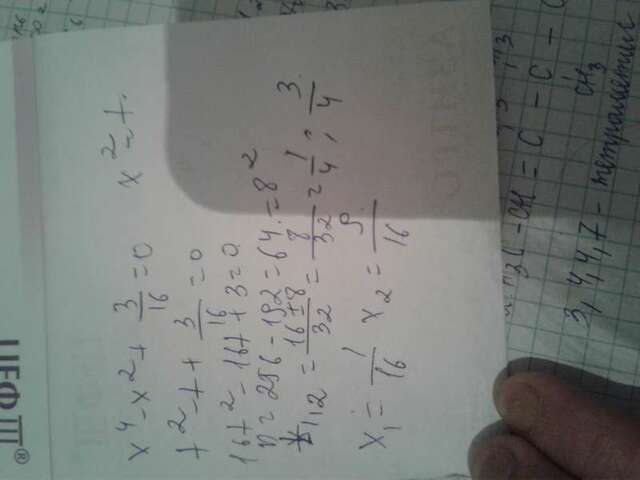 ЦЕФ III ®
x⁴ - x² + 3/16 = 0    x² = t.
t² - t + 3/16 = 0
16t² - 16t + 3 = 0
D = 256 - 192 = 64. = 8²
t₁,₂ = (16 ± 8)/32 = 8/32 = 1/4 ; 3/4
x₁ = 1/16  x₂ = 9/16
CH = C - C - C
CH₃
3, 4, 4, 7 - тетраметил